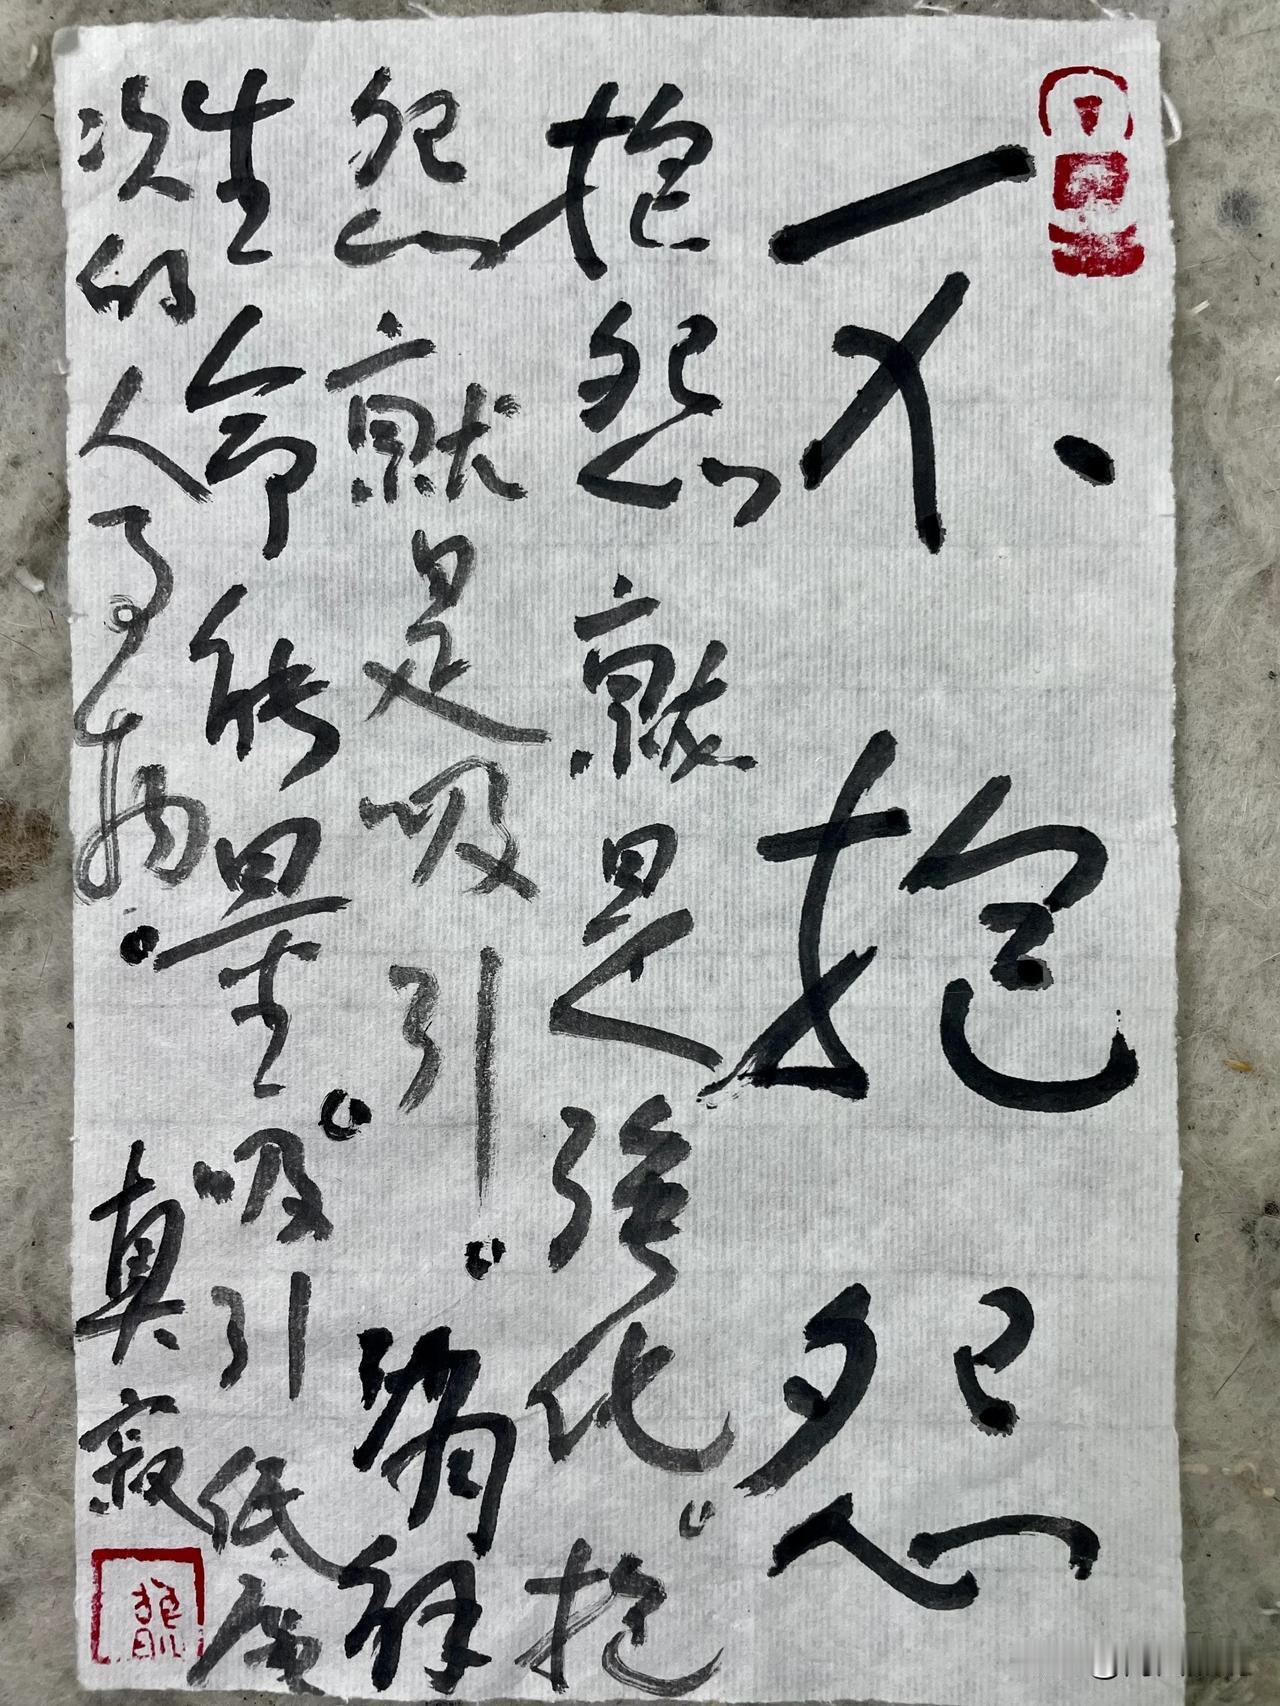 不抱怨
抱怨就是强化。抱
怨就是吸引。
生命能量。吸引低层
次的人事物。真寂